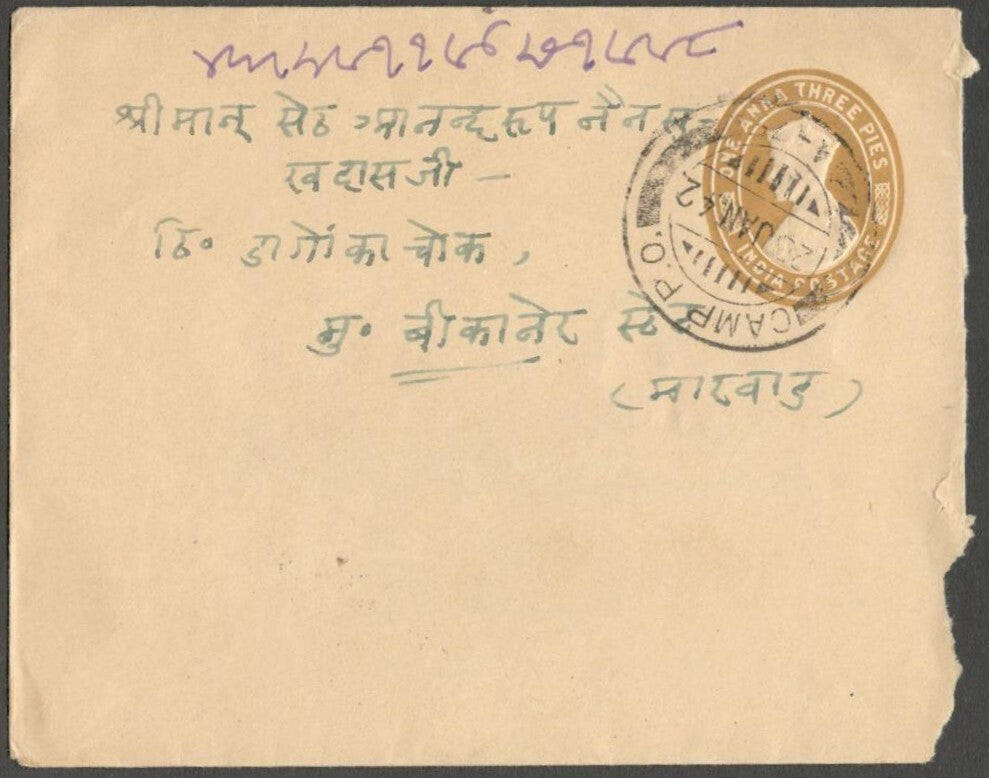 श्रीमान् सेठ आनन्दरूप नैनसु
खदासजी —
ठि॰ डागों का चोक ,
मु॰ बीकानेर स्टेट
(मारवाड़)
ONE ANNA THREE PIES
INDIA POSTAGE
CAMP P.O.
JAN. 42